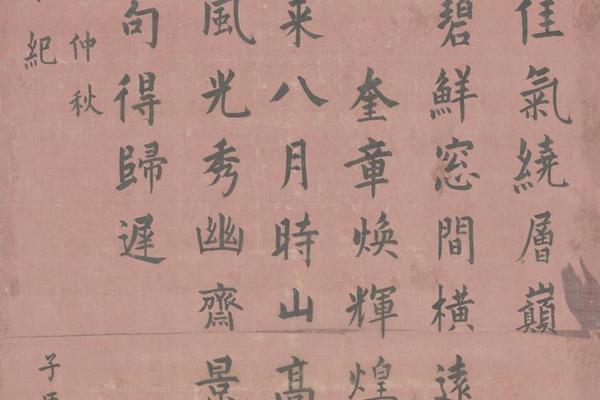 佳氣繞層巔
碧鮮窓間橫遠
奎章煥輝煌
来八月時山高
風光秀幽齋景
句得歸遲
仲秋
紀
子